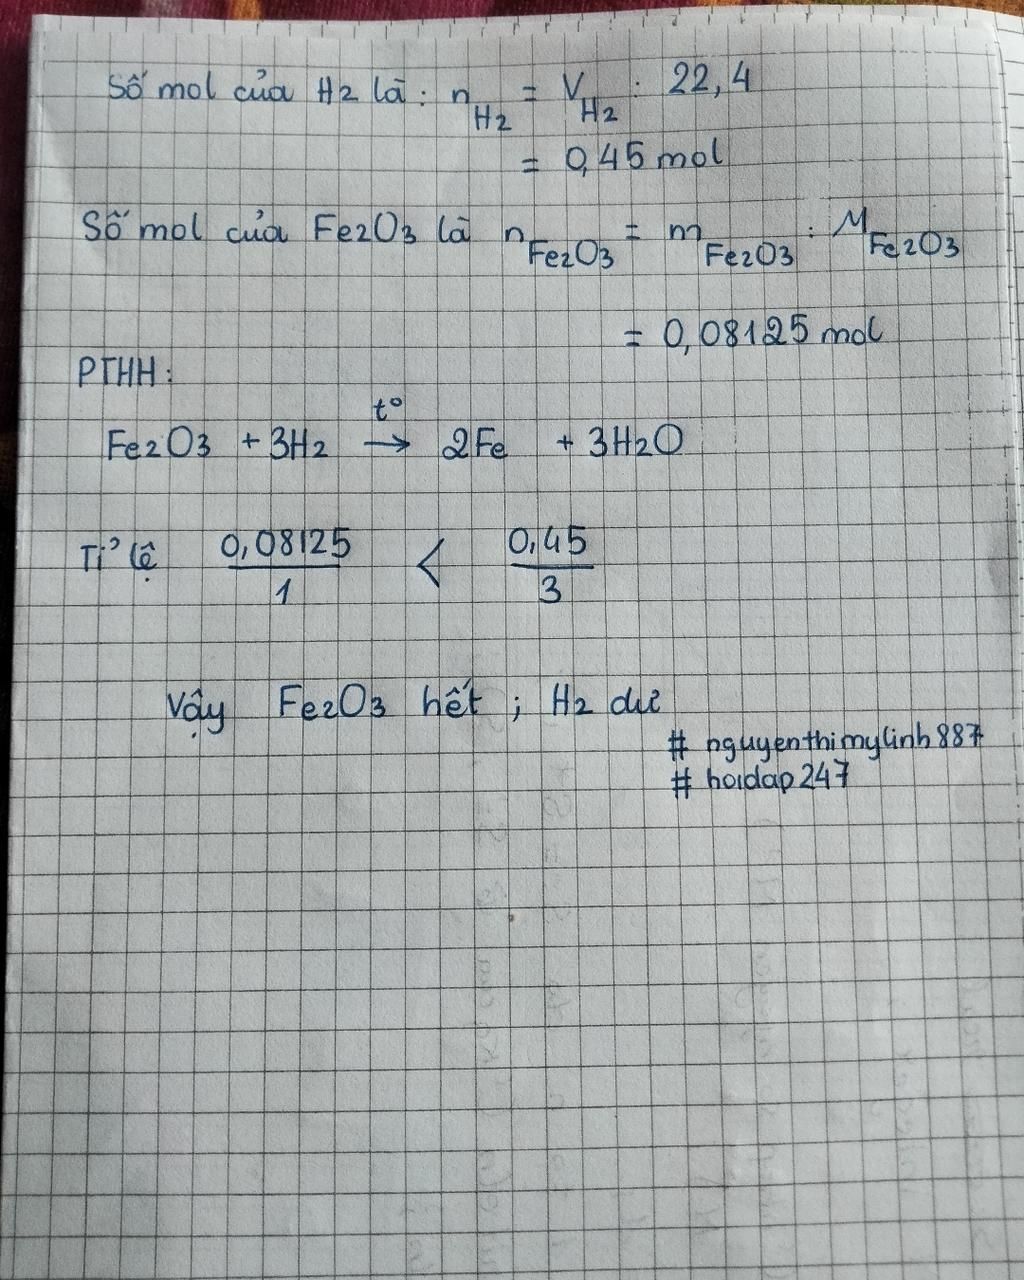 Số mol của H2 là: nH2 = VH2 : 22,4
= 0,45 mol
Số mol của Fe2O3 là nFe2O3 = mFe2O3 : MFe2O3
= 0,08125 mol
PTHH:
t°
Fe2O3 + 3H2 → 2Fe + 3H2O
Tỉ lệ 0,08125/1 < 0,45/3
Vậy Fe2O3 hết ; H2 dư
# nguyenthimylinh887
# hoidap247